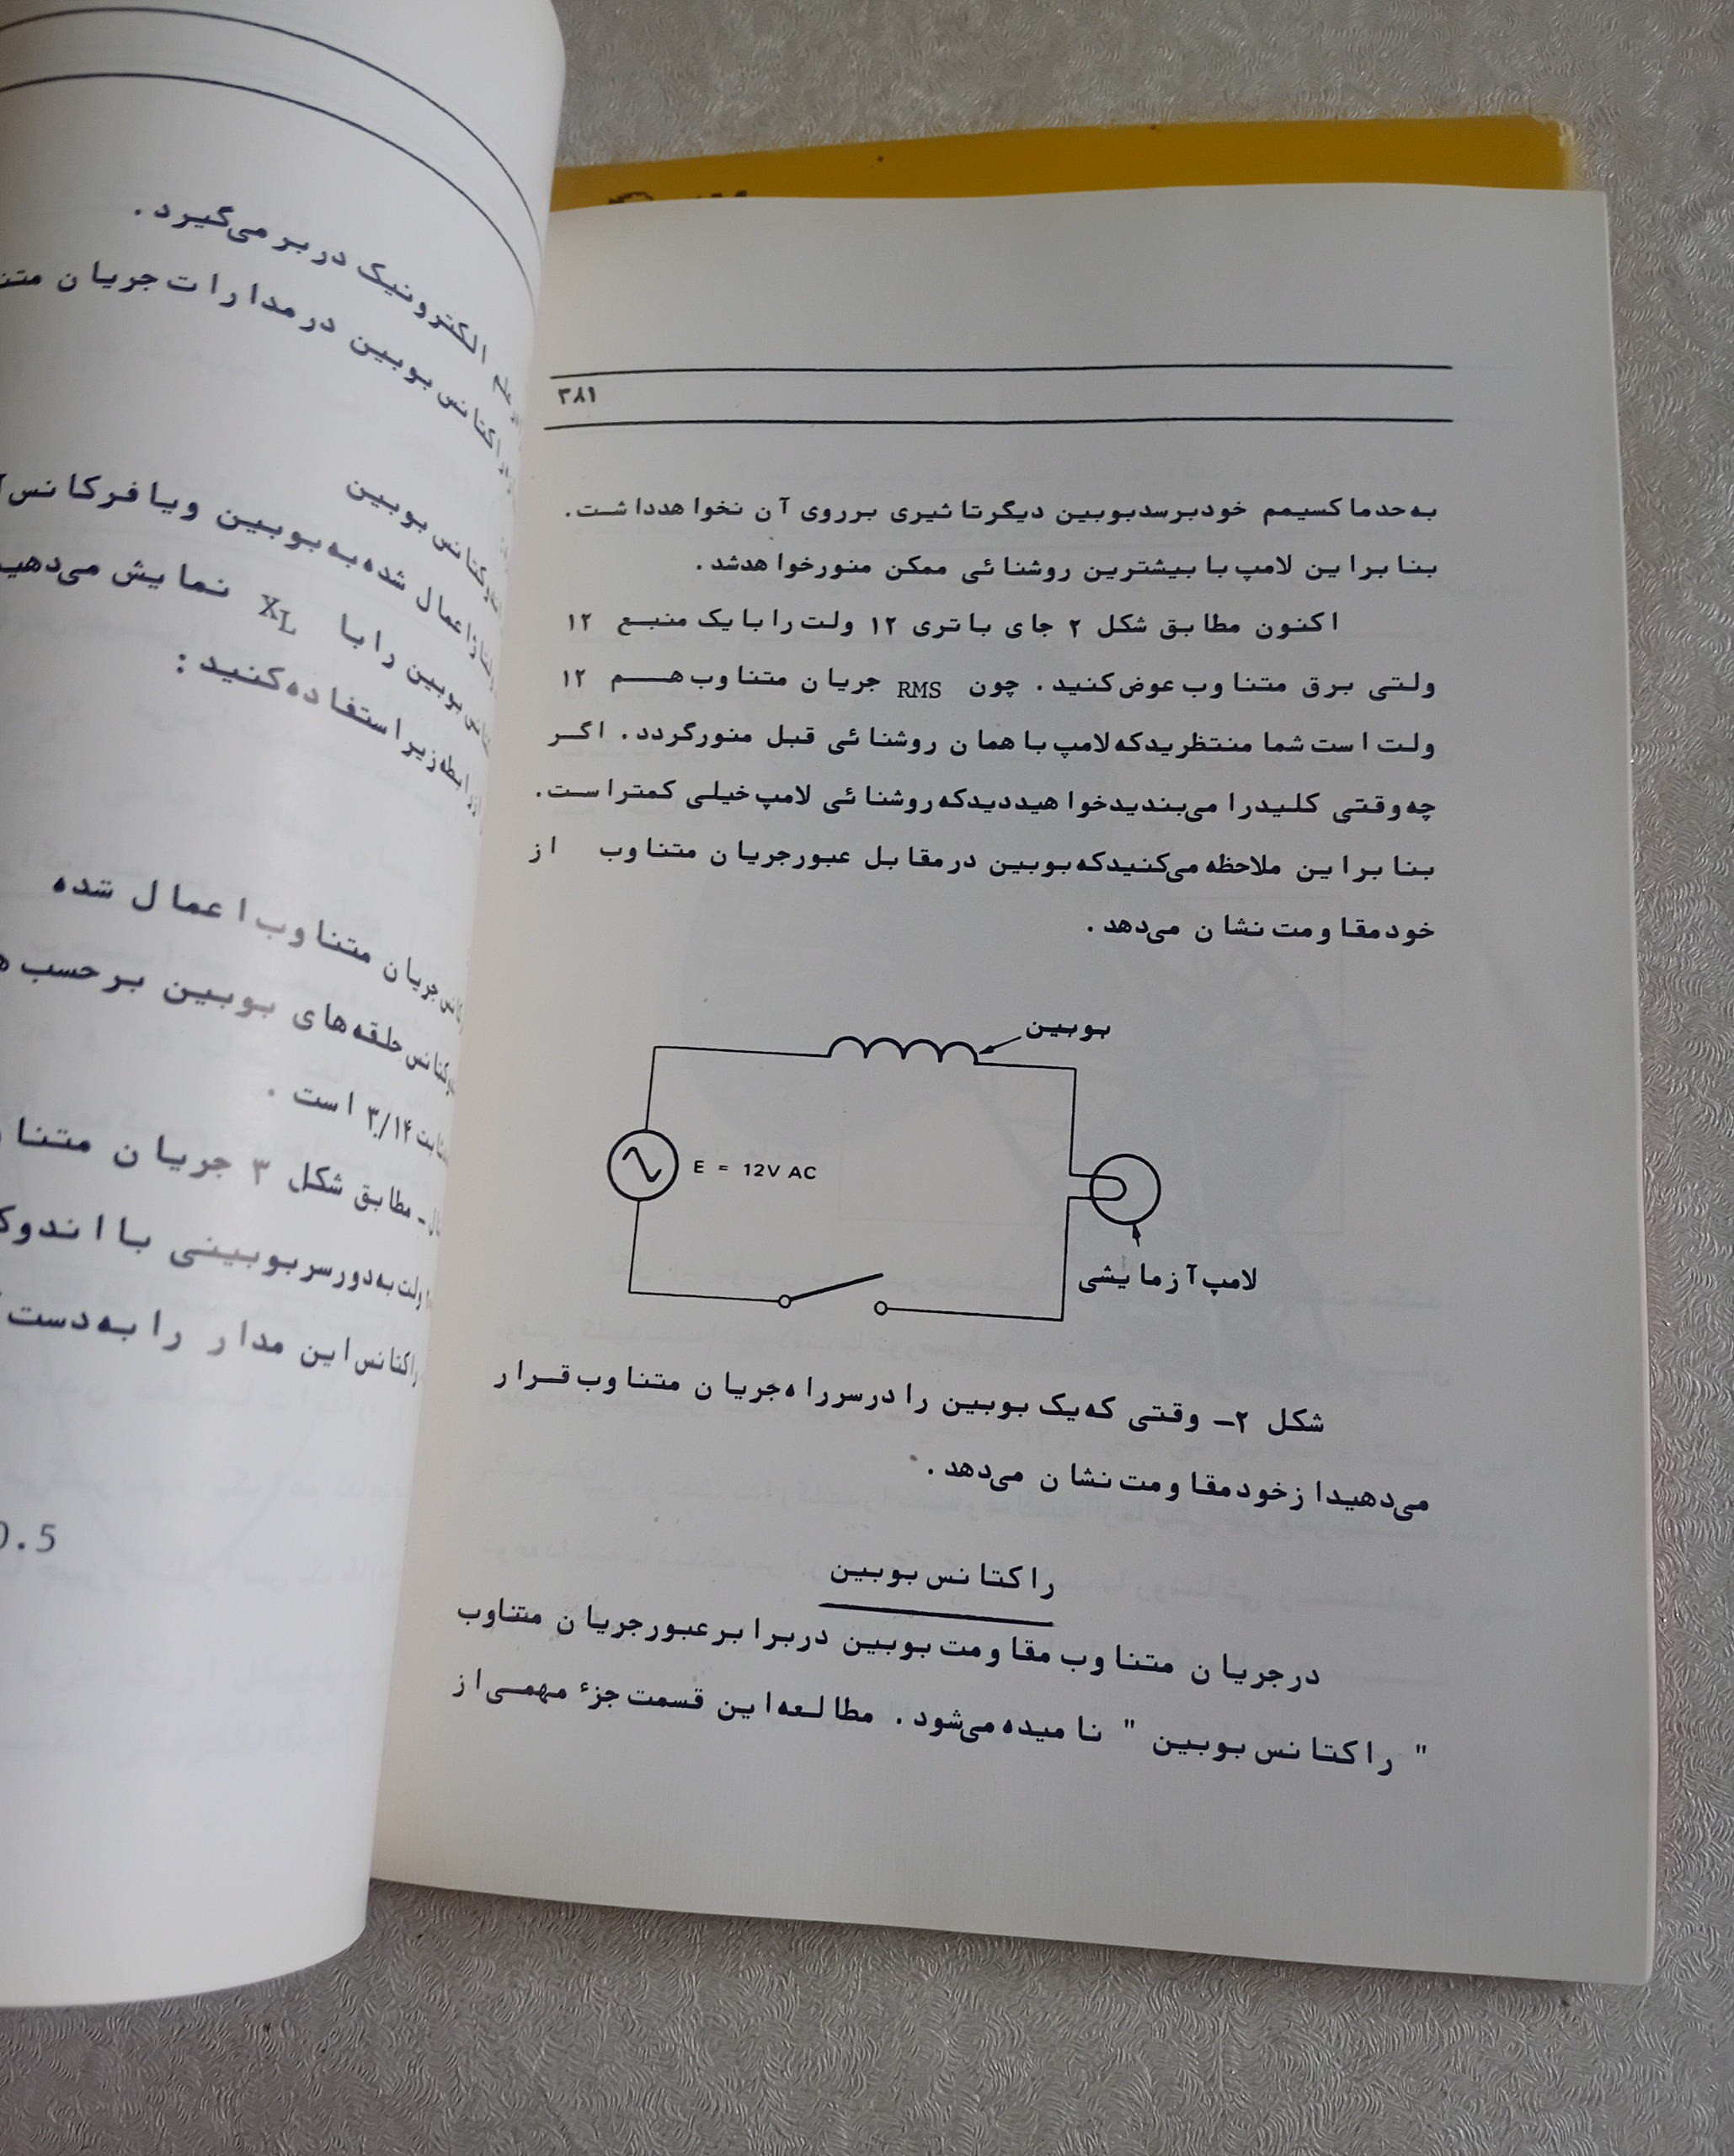 ۳۸۱
به حد ماکسیمم خود برسد بوبین دیگر تا ثیری بر روی آن نخوا هد دا شت.
بنا برا ین لامپ با بیشترین روشنا ئی ممکن منور خوا هد شد.
ا کنون مطا بق شکل ۲ جای با تری ۱۲ ولت را با یک منبع ۱۲
ولتی برق متنا وب عوض کنید. چون RMS جریا ن متنا وب هم ۱۲
ولت ا ست شما منتظرید که لامپ با هما ن روشنا ئی قبل منور گردد. اگر
چه وقتی کلید را می‌بندید خوا هید دید که روشنا ئی لامپ خیلی کمتر ا ست.
بنا برا ین ملاحظه می‌کنید که بوبین در مقا بل عبور جریا ن متنا وب ا ز
خود مقا ومت نشا ن می‌دهد.
بوبین
E = 12V AC
لامپ آ زما یشی
شکل ۲- وقتی که یک بوبین را در سر را ه جریا ن متنا وب قرا ر
می‌دهید ا ز خود مقا ومت نشا ن می‌دهد.
را کتا نس بوبین
در جریا ن متنا وب مقا ومت بوبین در برا بر عبور جریا ن متناوب
" را کتا نس بوبین " نا میده می‌شود. مطا لعه ا ین قسمت جزء مهمی ا ز
الکترونیک در بر می‌گیرد.
راکتا نس بوبین در مدا را ت جریا ن
بوبین
ا عما ل شده به بوبین ویا فرکا نس
بوبین را با XL نما یش می‌دهی
زیر ا ستفا ده کنید:
جریا ن متنا وب ا عما ل شده
حلقه‌های بوبین بر حسب
۳/۱۴ ا ست.
مطا بق شکل ۳ جریا ن
ولت به دو سر بوبینی با
راکتا نس ا ین مدا ر را به دست
0.5